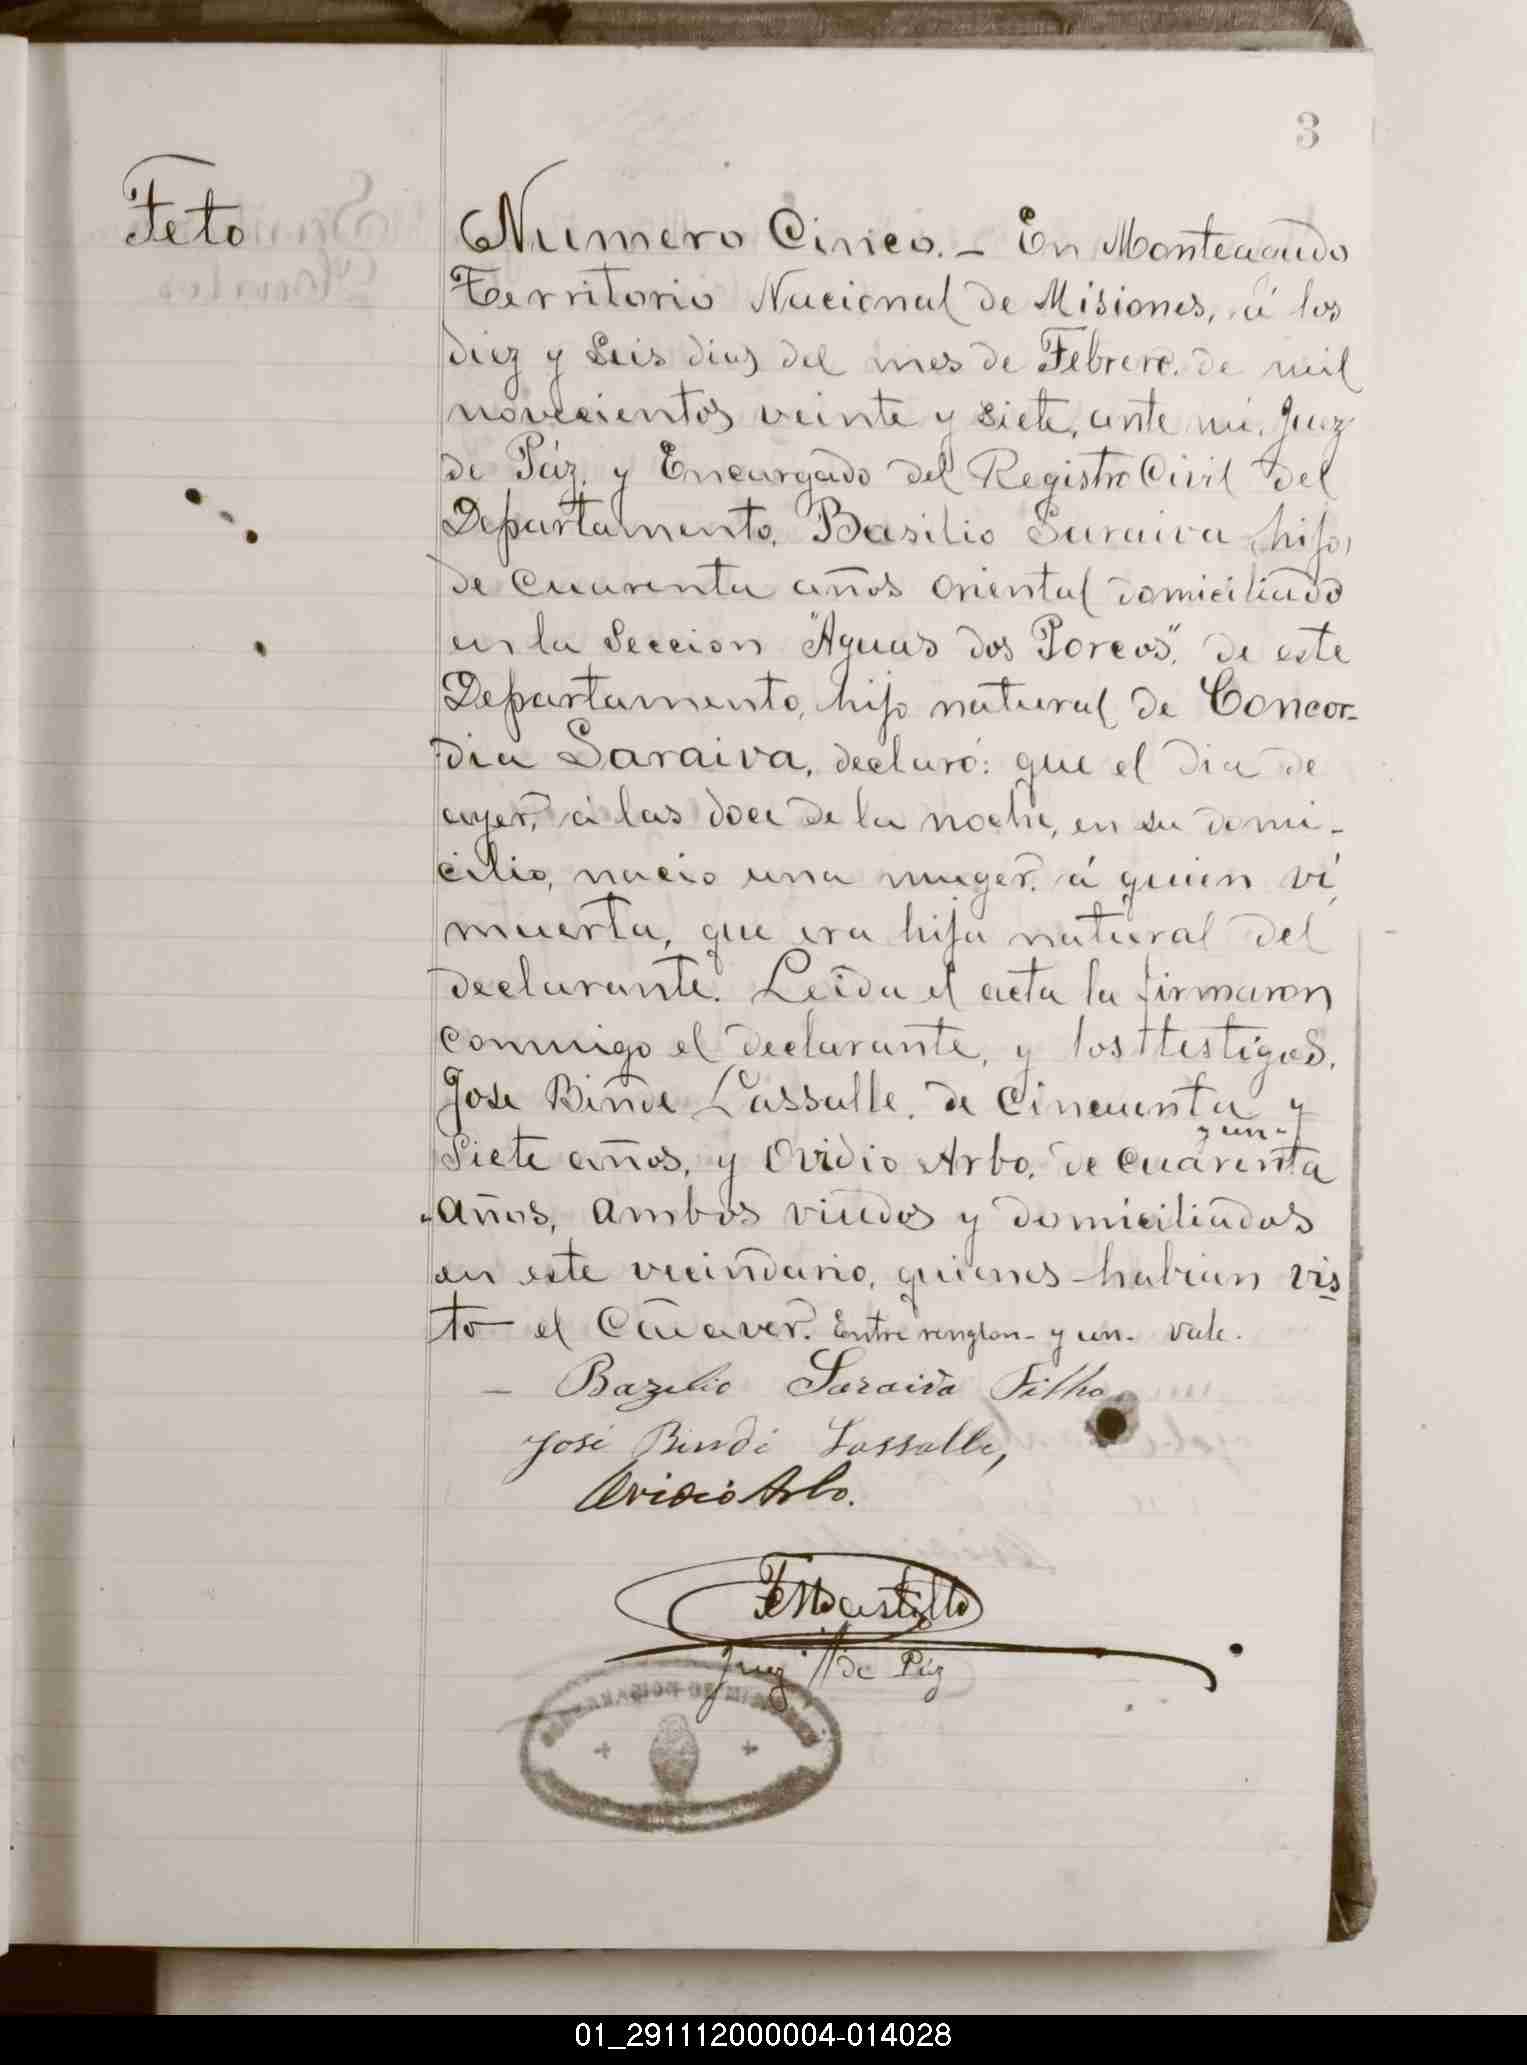 3
Feto
Numero Cinco. - En Monteagudo
Territorio Nacional de Misiones, á los
diez y seis dias del mes de Febrero. de mil
novecientos veinte y siete, ante mi, Juez
de Páz, y Encargado del Registro Civil del
Departamento, Basilio Saraiva (hijo)
de cuarenta años oriental domiciliado
en la Seccion "Aguas dos Porcos", de este
Departamento, hijo natural de Concor-
dia Saraiva, declaró: que el dia de
ayer, á las doce de la noche, en su domi-
cilio, nacio una muger, á quien ví,
muerta, que era hija natural del
declarante. Leida el acta la firmaron
conmigo el declarante, y los testigos.
Jose Binde Lassalle, de cincuenta y
y un-
siete años, y Ovidio Arbo, de cuarenta
años, ambos viudos y domiciliados
en este vecindario, quienes habian vis
to el cadaver. Entre renglon- y un- vale.
- Bazilio Saraiva Filho
José Bindé Lassalle,
Ovidio Arbo.
Juez de Páz
01_291112000004-014028